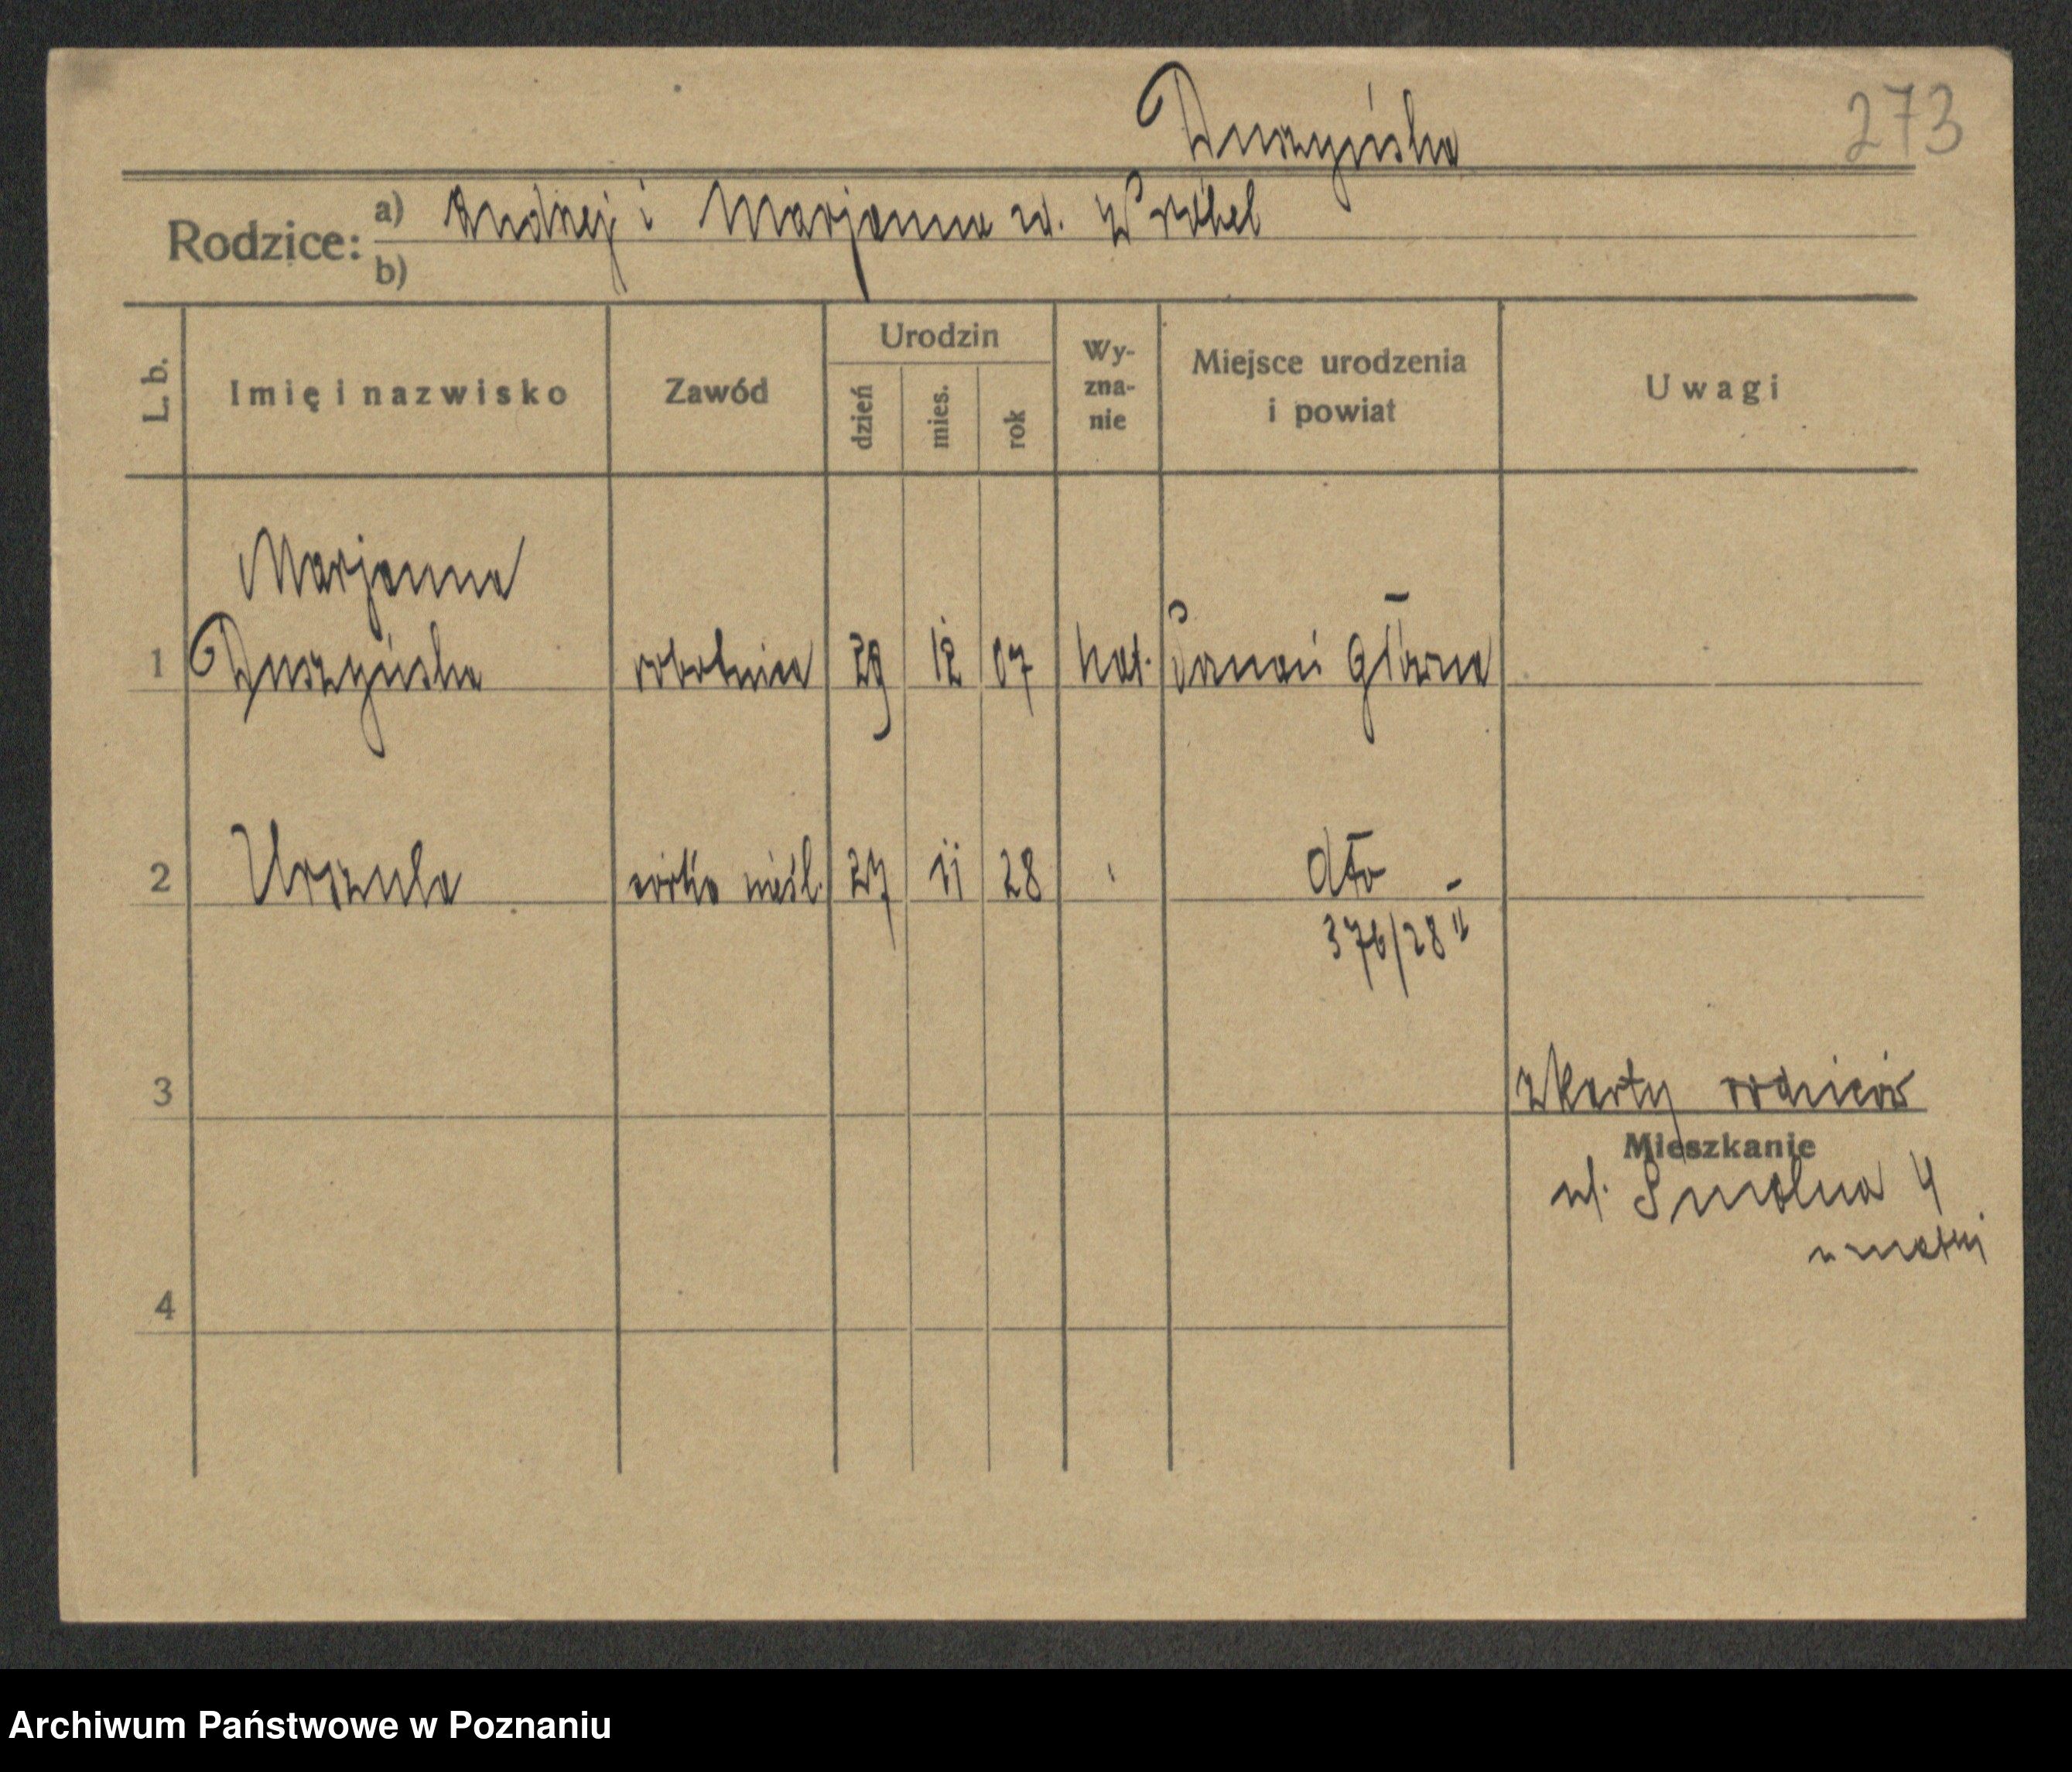 Duszyńska
273
Rodzice: a) Andrzej i Marjanna z d. Wróbel
b)
L. b.
Imię i nazwisko
Zawód
Urodzin
dzień
mies.
rok
Wy-
zna-
nie
Miejsce urodzenia
i powiat
Uwagi
Marjanna
1 Duszyńska robotnica 29 12 07 kat. Poznań Główna
2 Urszula córka nieśl. 27 11 28 " dto -
376/28 II
3 z karty rodziców
Mieszkanie
ul. Smolna 4
u matki
4
Archiwum Państwowe w Poznaniu